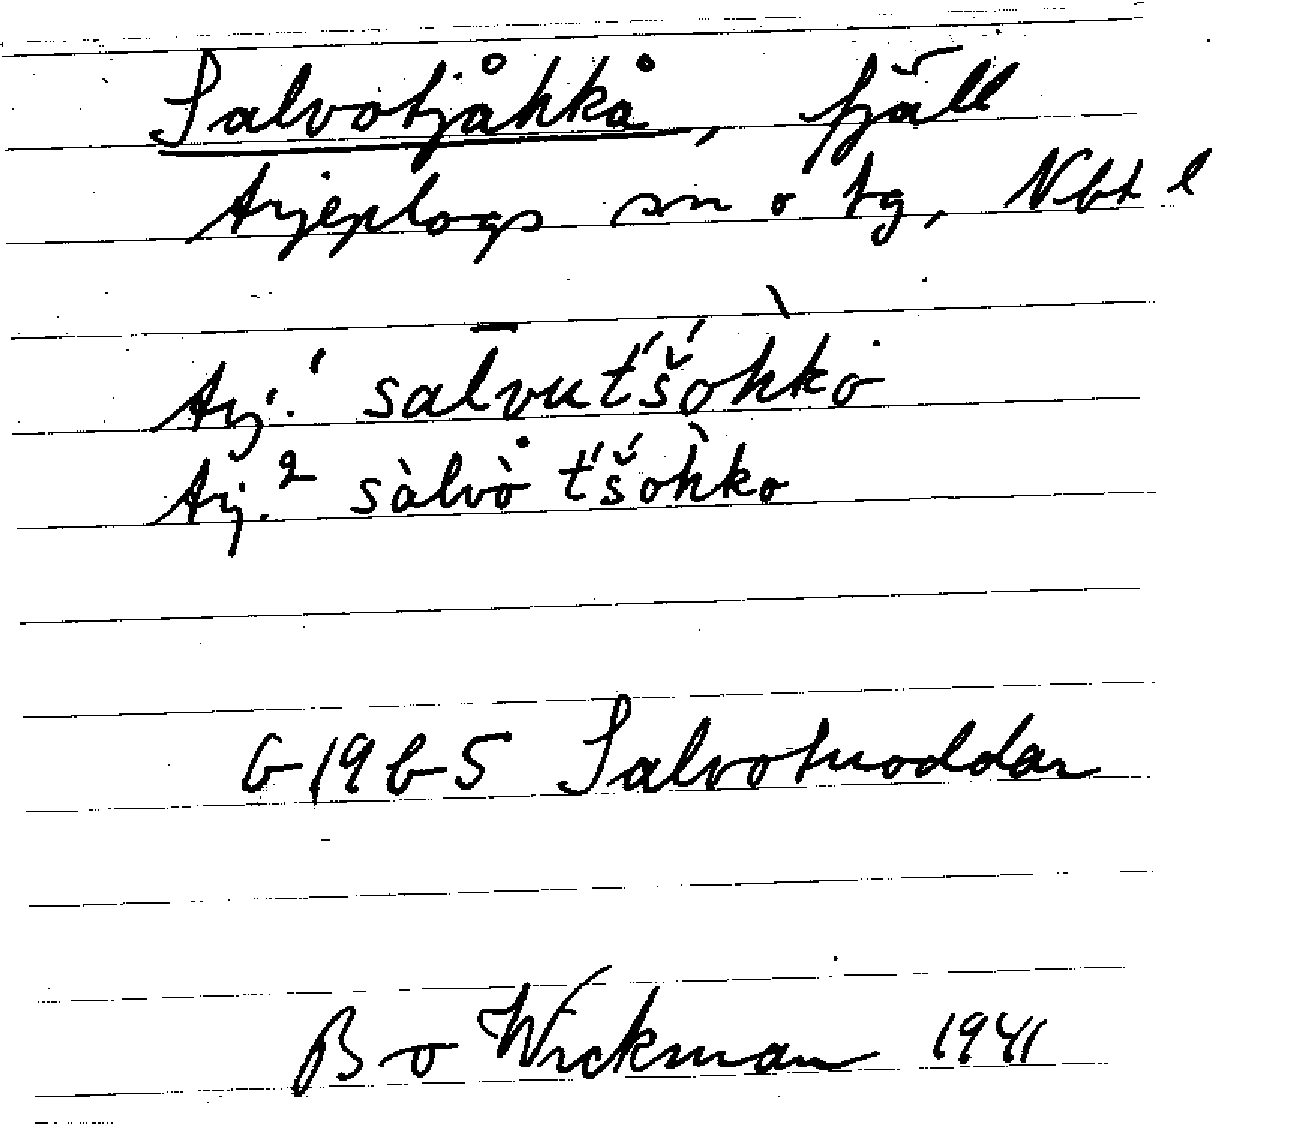 Salvotjåhkå, fjäll
Arjeplogs sn o tg, Nbt l
Arj.¹ salvut́š́ohkȯ
Arj.² sàlvò̇ t́š́oh̀ko
G 1965 Salvotuoddar
Bo Wickman 1941